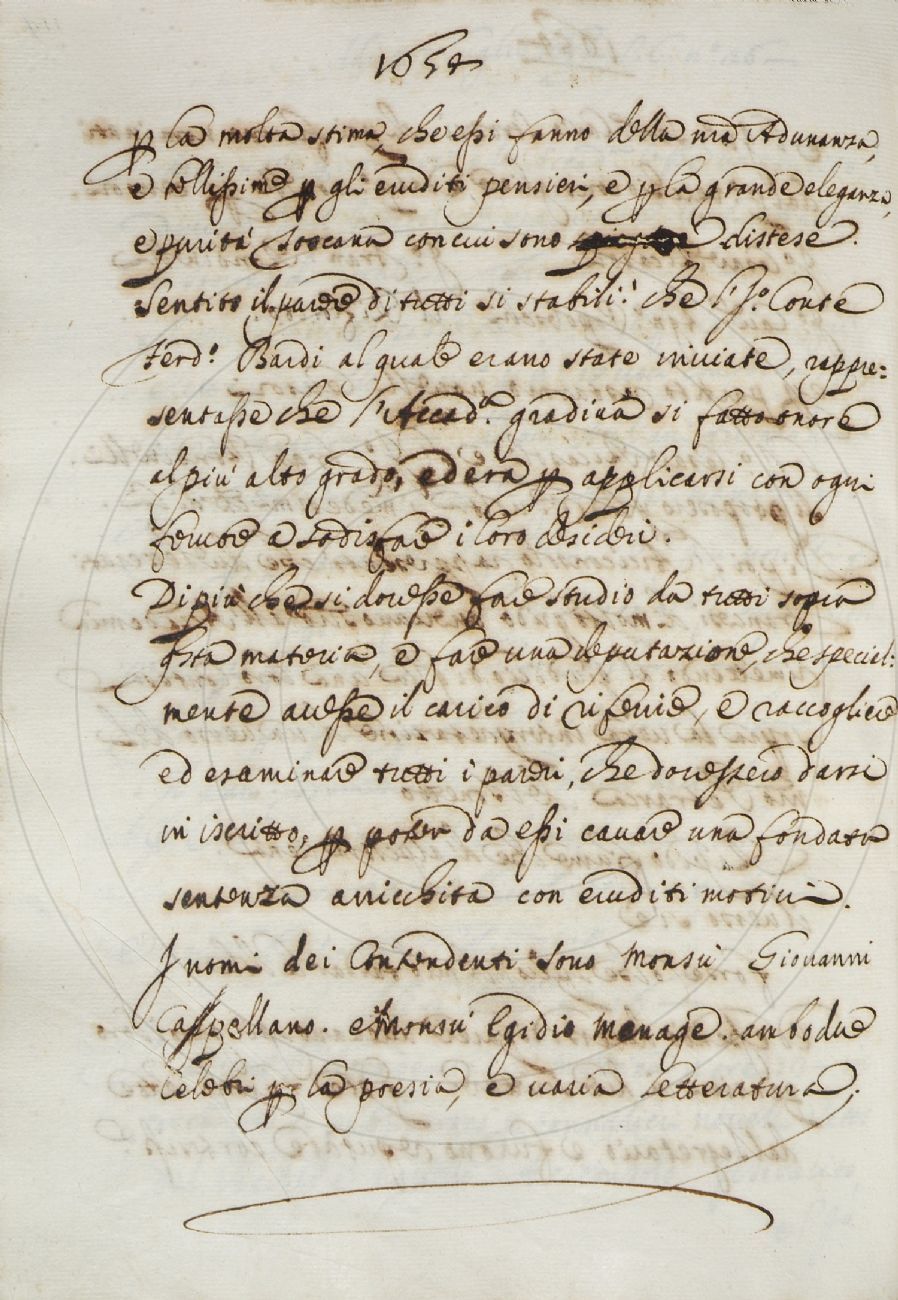 1654
p la molta stima, che essi fanno della nra Adunanza,
e bellissime p gli eruditi pensieri, e p la grande eleganza,
e purità Toscana con cui sono distese.
Sentito il parere di tutti si stabilì: che l' Sr. Conte
Ferd.o Bardi al quale erano state inviate, rappre=
sentasse che l'Accad.a gradiva si fatto onore
al più alto grado, ed era p applicarsi con ogni
fervore a sodisfare i loro desideri.
Di più che si dovesse fare studio da tutti sopra
qsta materia, e fare una deputazione, che special:
mente avesse il carico di riferire, e raccogliere
ed esaminare tutti i pareri, che dovessero darsi
in iscritto, p poter da essi cavare una fondata
sentenza arricchita con eruditi motivi.
I nomi dei Contendenti sono Monsù Giovanni
Cappellano. e Monsù Egidio Menage. ambodue
celebri p la poesia, e varia letteratura.